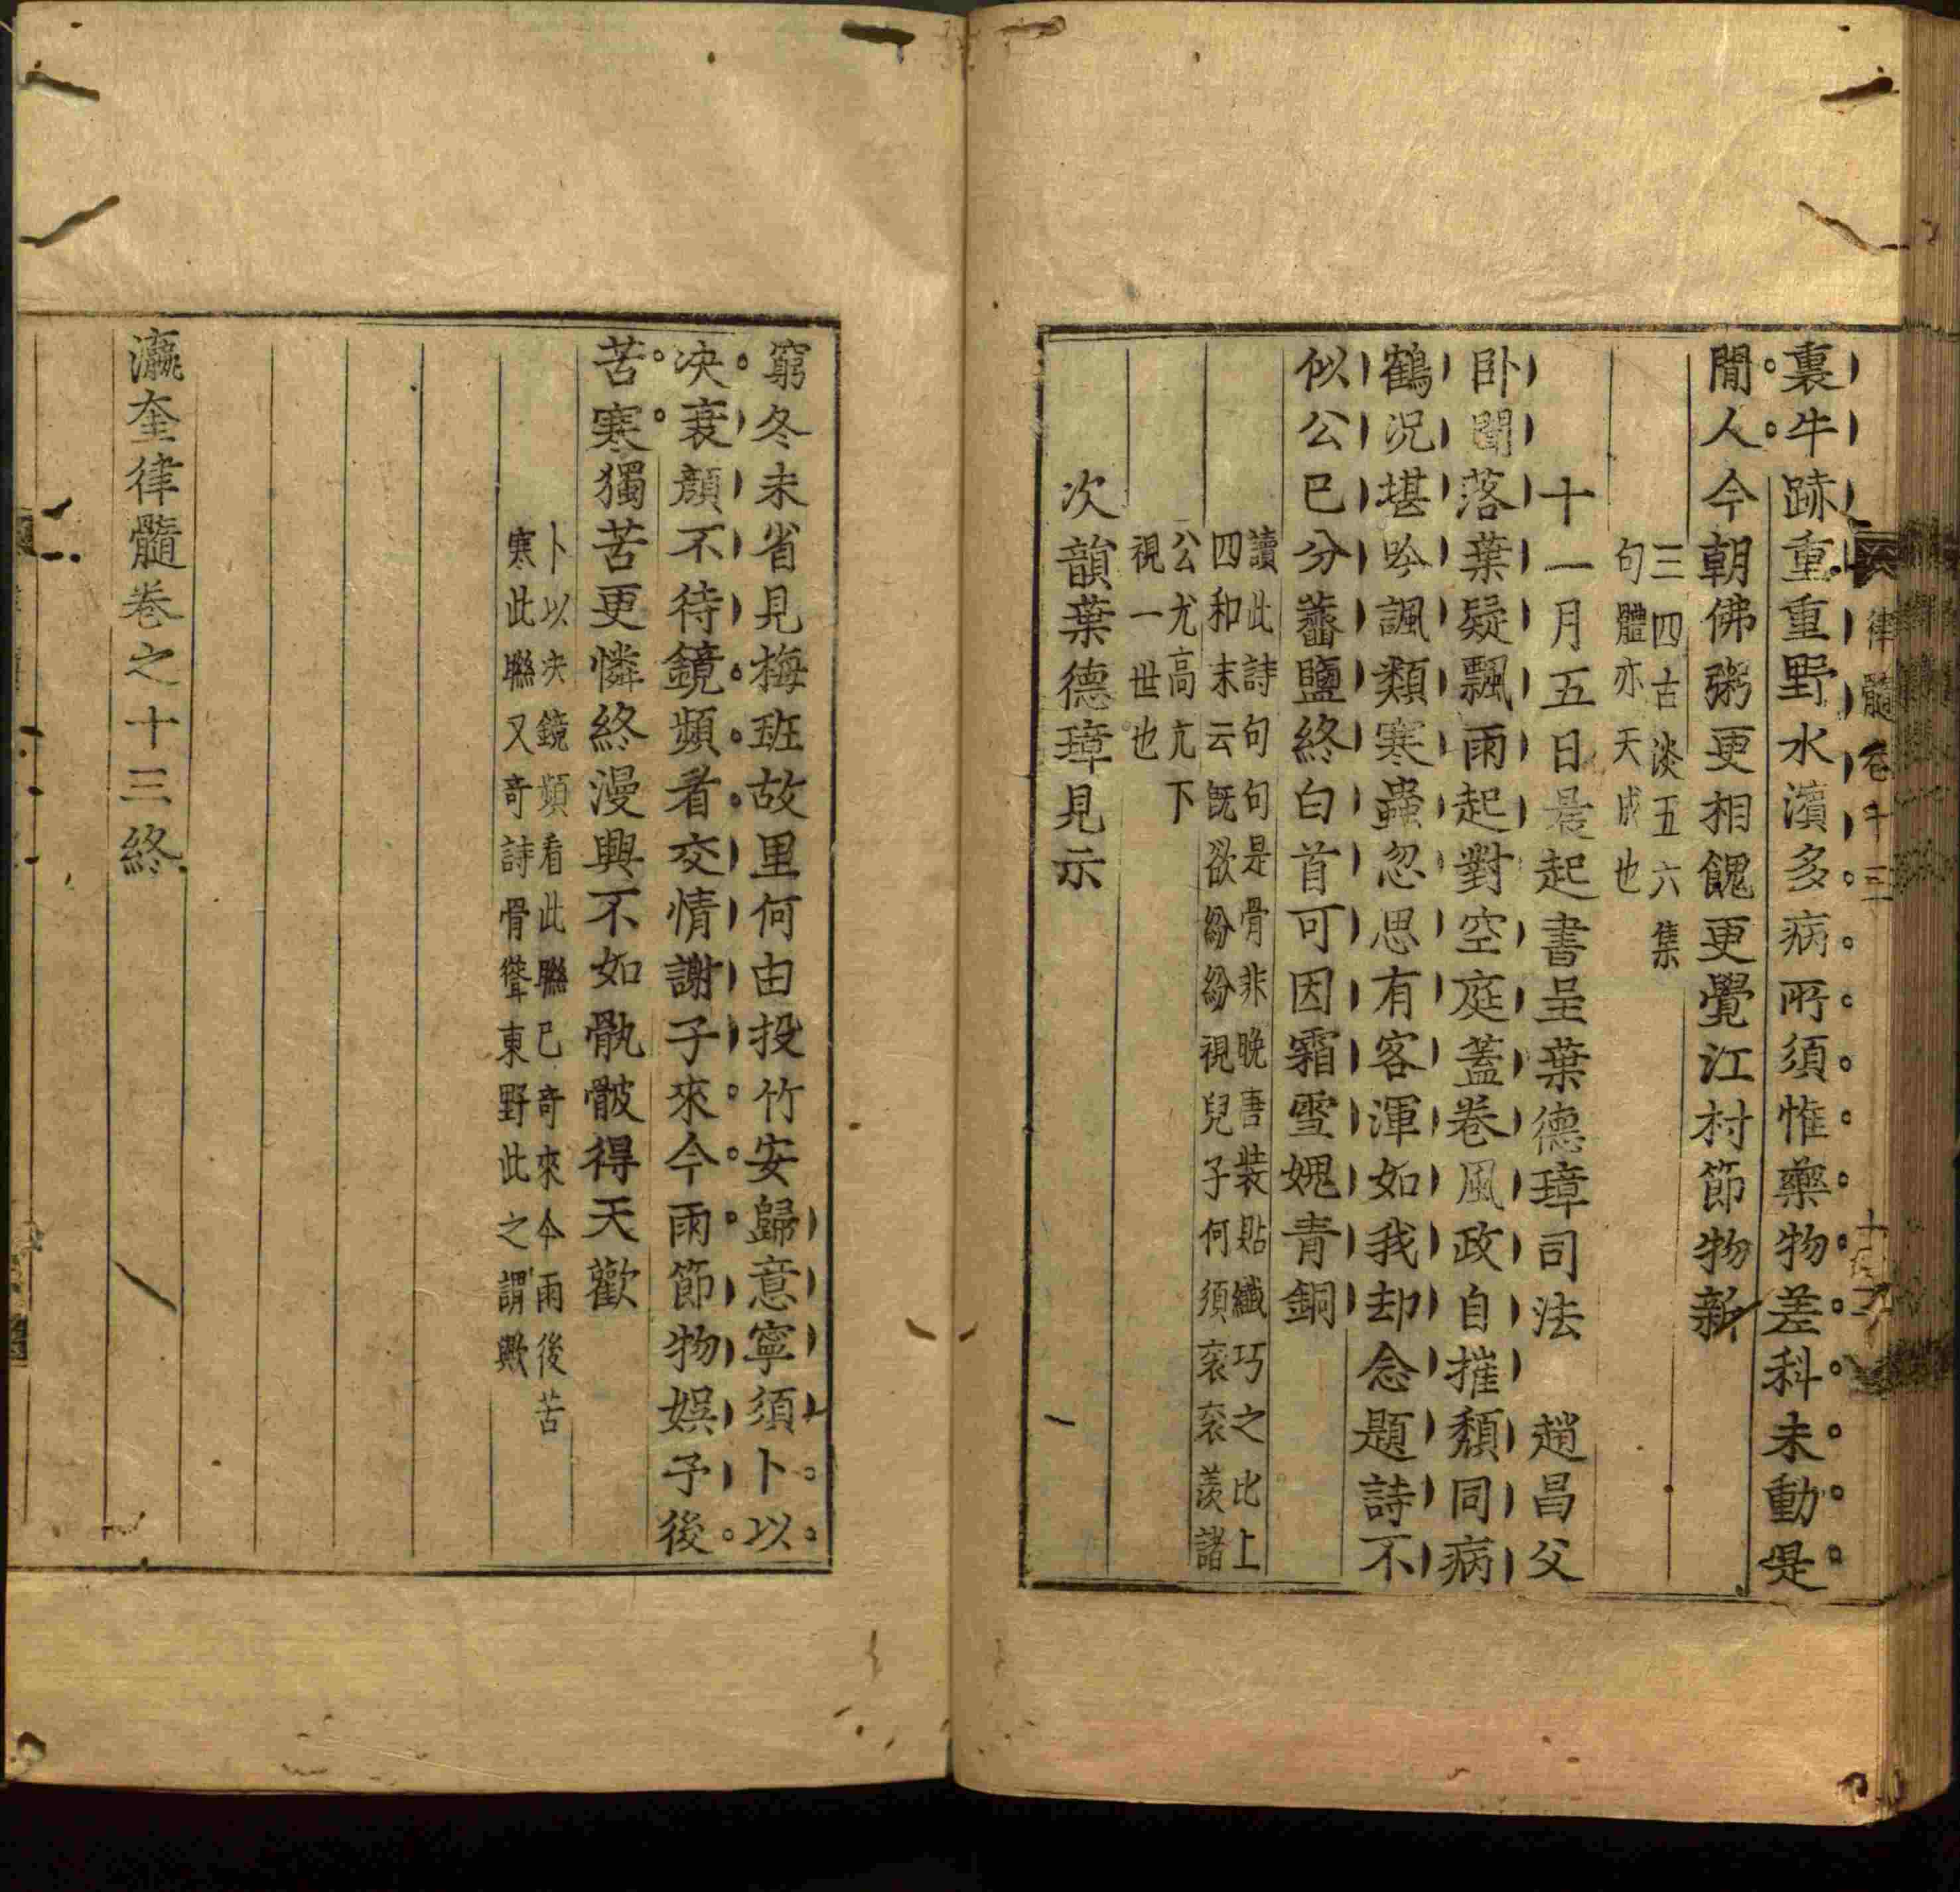 律髓卷十三
裏牛跡重重野水濱多病所須惟藥物差科未動是
閒人今朝佛粥更相餽更覺江村節物新
三四古淡五六集
句體亦天成也
十一月五日晨起書呈葉德璋司法 趙昌父
卧聞落葉疑飄雨起對空庭蓋卷風政自摧頹同病
鶴況堪吟諷類寒蟲忽思有客渾如我却念題詩不
似公已分虀鹽終白首可因霜雪媿青銅
讀此詩句句是骨非晚唐裝貼纖巧之比上
四和末云旣欲紛紛視兒子何須衮衮羨諸
公尤高亢下
視一世也
次韻葉德璋見示
窮冬未省見梅班故里何由投竹安歸意寧須卜以
决衰顔不待鏡頻看交情謝子來今雨節物娛予後
苦寒獨苦更憐終漫興不如骫骳得天歡
卜以决鏡頻看此聯已奇來今雨後苦
寒此聯又奇詩骨聳東野此之謂歟
瀛奎律髓卷之十三終